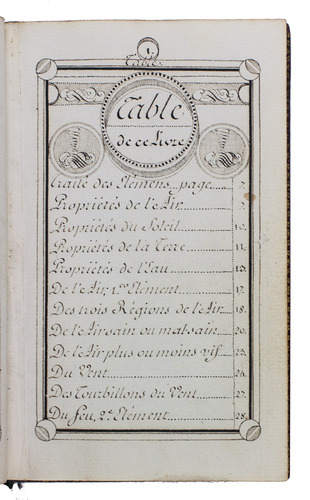 1.
Table
Table
de ce Livre
traité des Elémens page 7.
Propriétés de l'Air
Propriétés du Soleil 10.
Propriétés de la Terre 11.
Propriétés de l'Eau
De l'Air, 1.er Elément 17.
Des trois Régions de l'Air 18.
De l'Air sain ou malsain 20.
De l'Air plus ou moins vif 23.
Du Vent 24.
Des Tourbillons du Vent 27.
Du feu, 2.e Elément 28.